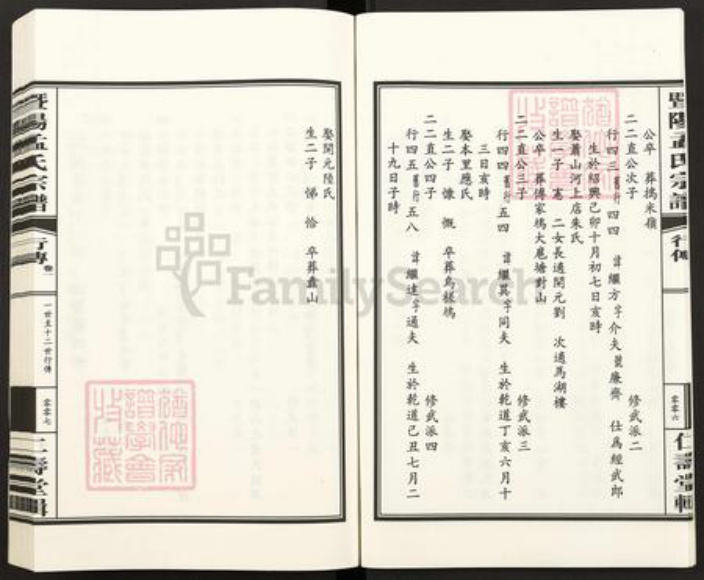 暨陽孟氏宗譜
行傳
零零六
仁壽堂輯
公卒 葬擣米嶺
二二直公次子 修武派二
行四三舊行四四 諱繼方字介夫號廉齋 仕爲經武郎
生於紹興己卯十月初七日亥時
娶蕭山河上店朱氏
生一子 憲 二女長適開元劉 次適馬湖樓
公卒 葬傅家塢大扈塘對山
二二直公三子 修武派三
行四四舊行五四 諱繼 字同夫 生於乾道丁亥六月十
三日亥時
娶本里應氏
生二子 慷 慨 卒葬烏樣塢
二二直公四子 修武派四
行四五舊行五八 諱繼達字通夫 生於乾道己丑七月二
十九日子時
娶開元陸氏
生二子 悌 恰 卒葬 山
暨陽孟氏宗譜
行傳 卷一
一世至十二世行傳
零零七
仁壽堂輯
FamilySearch